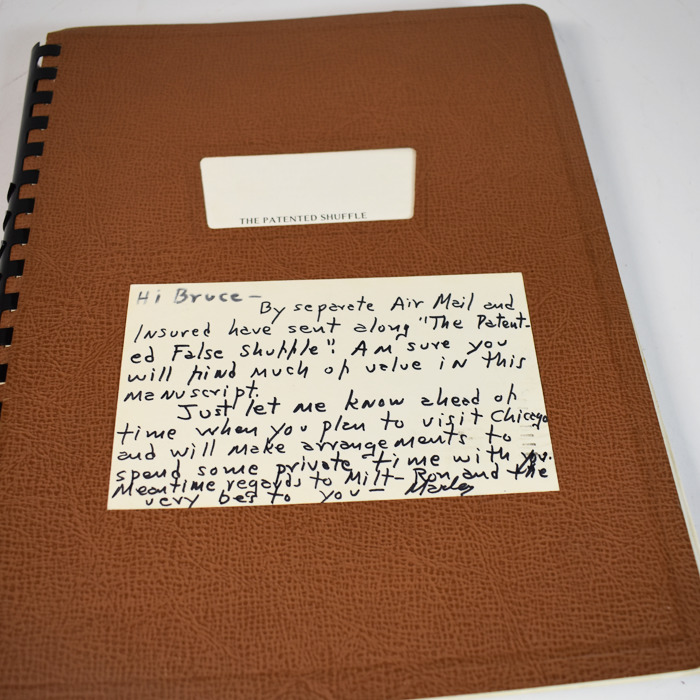 THE PATENTED SHUFFLE
Hi Bruce —
By separate Air Mail and
Insured have sent along "The Patent-
ed False Shuffle". Am sure you
will find much of value in this
manuscript.
Just let me know ahead of
time when you plan to visit Chicago
and will make arrangements to
spend some private time with you.
Meantime regards to Milt - Ron and the
very best to you — Marlo